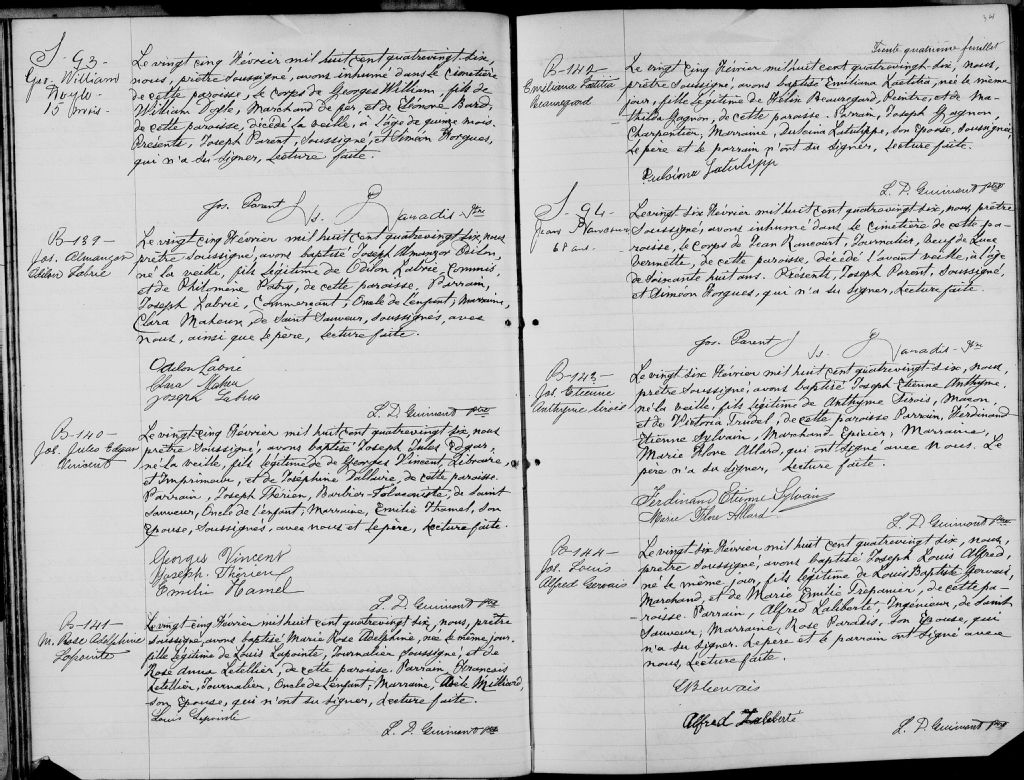 S-93-
Geo. William
Doyle
15 mois-
Le vingt cinq Février mil huit cent quatrevingt-six,
nous, prêtre soussigné, avons inhumé dans le cimetière
de cette paroisse, le corps de Georges William, fils de
William Doyle, Marchand de fer, et de Etienne Bard,
de cette paroisse, décédé la veille, à l'âge de quinze mois.
Présents, Joseph Parent, soussigné, et Siméon Dorgues,
qui n'a su signer, Lecture faite.
Jos. Parent Js. Paradis - Ptre
B-139-
Jos. Almanzor
Odilon Labrie
Le vingt cinq Février mil huit cent quatrevingt six, nous
prêtre soussigné, avons baptisé Joseph Almanzor Odilon,
né la veille, fils légitime de Odilon Labrie, Commis,
et de Philomène Patry, de cette paroisse. Parrain,
Joseph Labrié, Commerçant, Oncle de l'enfant; Marraine,
Clara Maheux, de Saint Sauveur, soussignés, avec
nous, ainsi que le père, Lecture faite.
Odilon Labrie
Clara Maheu
Joseph Labrie
L. D. Guimont ptre
B-140-
Jos. Jules Edgar
Vincent
Le vingt cinq Février mil huit cent quatrevingt six, nous
prêtre soussigné, avons baptisé Joseph Jules Edgar,
né la veille, fils légitime de Georges Vincent, Libraire,
et Imprimeur, et de Joséphine Vallière, de cette paroisse.
Parrain, Joseph Thérien, Barbier-Tabaconiste, de Saint
Sauveur, Oncle de l'enfant; Marraine, Emilie Hamel, son
Epouse, soussignés, avec nous et le père, Lecture faite.
Georges Vincent
Joseph Thérien
Emilie Hamel
L. D. Guimont ptre
B-141-
M. Rose Adelphine
Lapointe
Le vingt cinq Février mil huit cent quatrevingt six, nous, prêtre
soussigné, avons baptisé Marie Rose Adelphine, née le même jour,
fille légitime de Louis Lapointe, Journalier soussigné, et de
Rose Anna Letellier, de cette paroisse. Parrain, François
Letellier, Journalier, Oncle de l'enfant; Marraine, Adèle Milliard,
son Epouse, qui n'ont su signer, Lecture faite.
Louis Lapointe
L. D. Guimont ptre
34
Trente quatrième feuillet
B-142-
Emiliana
Beauregard
Le vingt cinq Février mil huit cent quatrevingt six, nous,
prêtre soussigné, avons baptisé Emiliana née le même
jour, fille légitime de Beauregard, Peintre, et de Ma-
thilda Gagnon, de cette paroisse. Parrain, Joseph Gagnon,
Charpentier, Marraine, Dulcina Latulippe, son Epouse, soussignée,
Le père et le parrain n'ont su signer, Lecture faite.
Dulcina Latulipp
L. D. Guimont ptre
S-94-
Jean Rancour
68 ans.
Le vingt six Février mil huit cent quatrevingt-six, nous, prêtre
soussigné, avons inhumé dans le cimetière de cette pa-
roisse, le corps de Jean Rancourt, Journalier, Veuf de Luce
Vermette, de cette paroisse, décédé l'avant veille, à l'âge
de soixante huit ans. Présents, Joseph Parent, soussigné,
et Siméon Dorgues, qui n'a su signer, Lecture faite.
Jos. Parent Js. Paradis - Ptre
B-143-
Jos. Etienne
Anthyme Sirois
Le vingt six Février mil huit cent quatrevingt six, nous,
prêtre soussigné, avons baptisé Joseph Etienne Anthyme,
né la veille, fils légitime de Anthyme Sirois, Maçon,
et de Victoria Trudel, de cette paroisse Parrain, Ferdinand
Etienne Sylvain, Marchand-Epicier, Marraine,
Marie Flore Allard, qui ont signé avec nous. Le
père n'a su signer, Lecture faite.
Ferdinand Etienne Sylvain
Marie Flore Allard
L. D. Guimont ptre
B-144-
Jos. Louis
Alfred Gervais
Le vingt six Février mil huit cent quatrevingt six, nous,
prêtre soussigné, avons baptisé Joseph Louis Alfred,
né le même jour, fils légitime de Louis Baptiste Gervais,
Marchand, et de Marie Emilie Trepanier, de cette pa-
roisse. Parrain, Alfred Laliberté, Ingénieur, de Saint
Sauveur; Marraine, Rose Paradis, son Epouse, qui
n'a su signer. Le père et le parrain ont signé avec
nous, Lecture faite.
LB Gervais
Alfred Laliberté
L. D. Guimont ptre